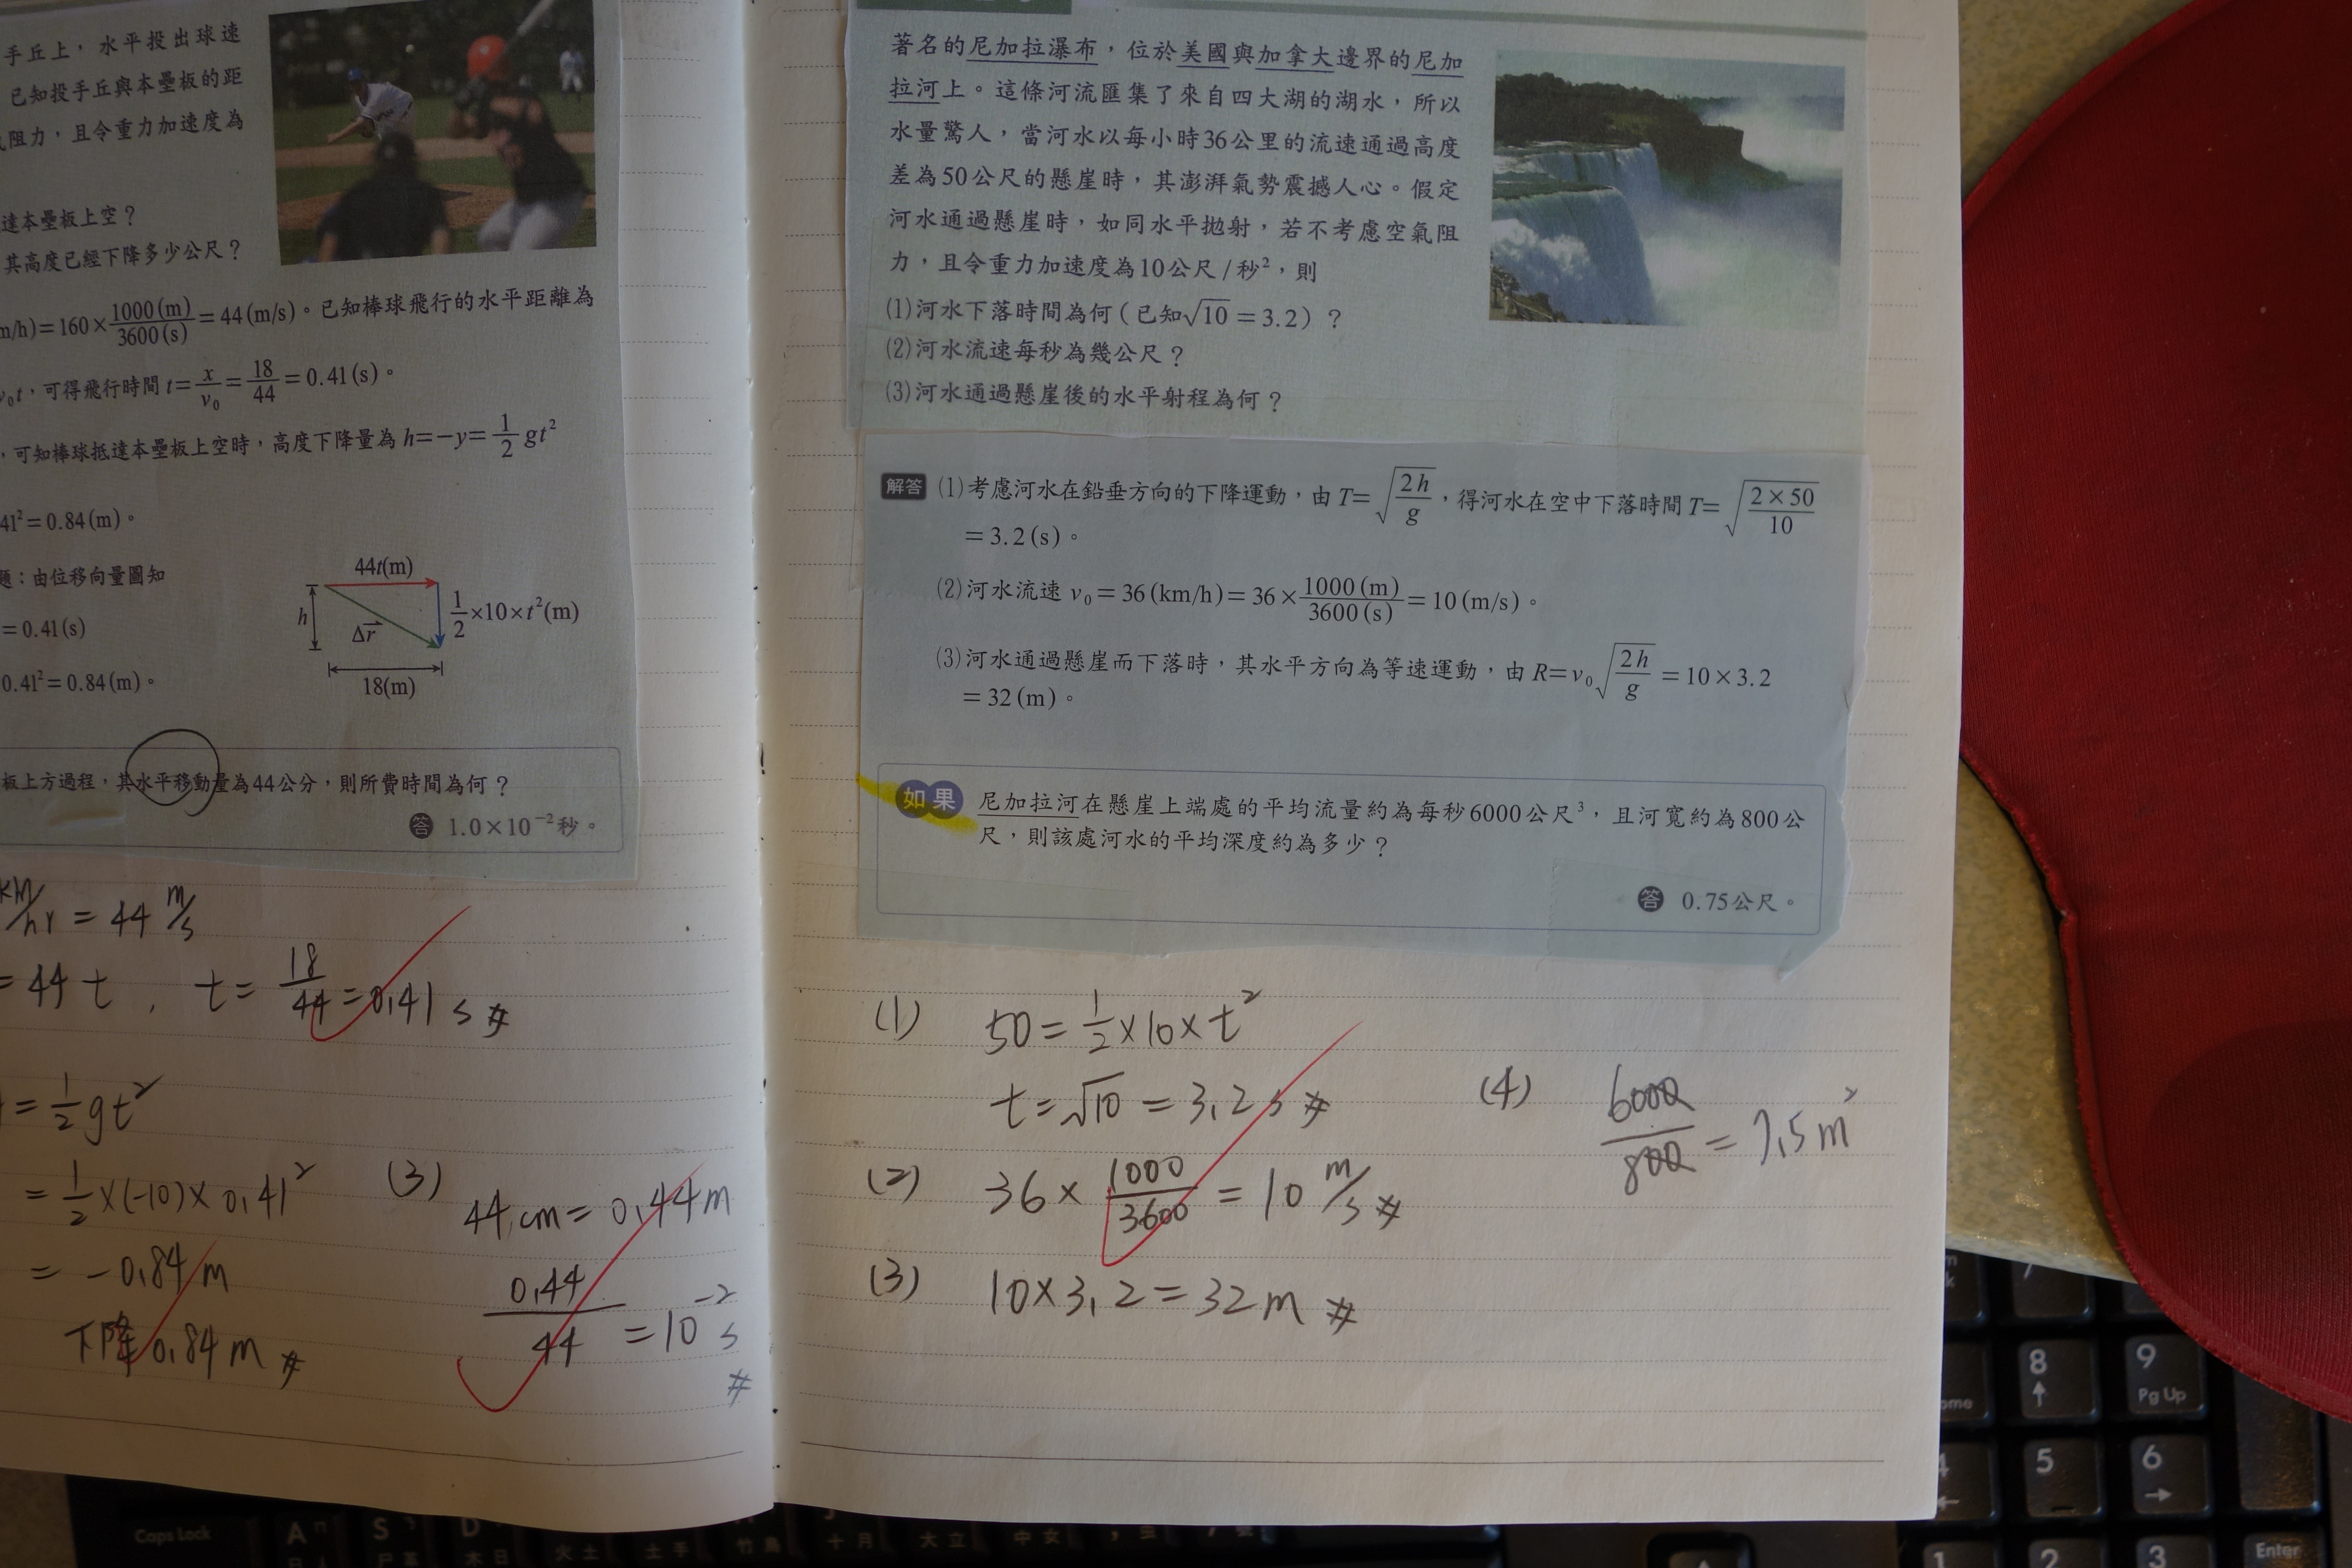 手丘上，水平投出球速
已知投手丘與本壘板的距
阻力，且令重力加速度為
達本壘板上空？
其高度已經下降多少公尺？
m/h)=160×1000(m)/3600(s)=44(m/s)。已知棒球飛行的水平距離為
v₀t，可得飛行時間 t=x/v₀=18/44=0.41(s)。
，可知棒球抵達本壘板上空時，高度下降量為 h=−y=1/2 gt²
41²=0.84(m)。
題：由位移向量圖知
=0.41(s)
0.41²=0.84(m)。
44t(m)
h
Δr⃗
1/2×10×t²(m)
18(m)
板上方過程，其水平移動量為44公分，則所費時間為何？
答 1.0×10⁻²秒。
km/hr = 44 m/s
= 44 t , t = 18/44 = 0.41 s #
= 1/2 gt²
= 1/2 ×(-10)× 0.41²
= -0.84 m
下降 0.84 m #
(3) 44 cm = 0.44 m
0.44/44 = 10⁻² s #
著名的尼加拉瀑布，位於美國與加拿大邊界的尼加
拉河上。這條河流匯集了來自四大湖的湖水，所以
水量驚人，當河水以每小時36公里的流速通過高度
差為50公尺的懸崖時，其澎湃氣勢震撼人心。假定
河水通過懸崖時，如同水平拋射，若不考慮空氣阻
力，且令重力加速度為10公尺/秒²，則
(1)河水下落時間為何（已知√10=3.2）？
(2)河水流速每秒為幾公尺？
(3)河水通過懸崖後的水平射程為何？
解答 (1)考慮河水在鉛垂方向的下降運動，由 T=√(2h/g)，得河水在空中下落時間 T=√(2×50/10)
=3.2(s)。
(2)河水流速 v₀=36(km/h)=36×1000(m)/3600(s)=10(m/s)。
(3)河水通過懸崖而下落時，其水平方向為等速運動，由 R=v₀√(2h/g)=10×3.2
=32(m)。
如果 尼加拉河在懸崖上端處的平均流量約為每秒6000公尺³，且河寬約為800公
尺，則該處河水的平均深度約為多少？
答 0.75公尺。
(1) 50 = 1/2 × 10 × t²
t = √10 = 3.2 s #
(2) 36 × 1000/3600 = 10 m/s #
(3) 10 × 3.2 = 32 m #
(4) 6000/800 = 7.5 m²
8
9
Pg Up
4
5
6
1
2
3
Enter
Caps Lock
A
S
D